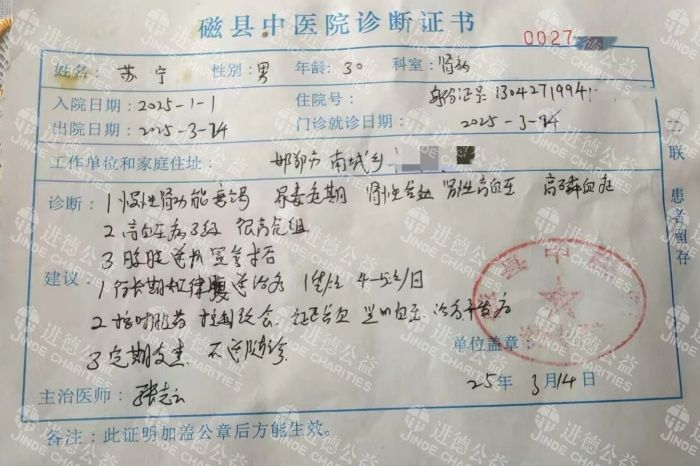 磁县中医院诊断证书
0027
姓名: 苏宁 性别: 男 年龄: 30 科室: 肾病
入院日期: 2025-1-1 住院号: 身份证号1304271994
出院日期: 2025-3-14 门诊就诊日期: 2025-3-14
工作单位和家庭住址: 邯郸市南城乡
诊断: 1 慢性肾功能衰竭 尿毒症期 肾性贫血 肾性高血压 高磷血症
2 高血压病3级 很高危组
3
建议: 1 行长期规律 透治疗 4-5 /月
2 按时服药 控制饮食 纠正贫血 血压 治疗并发症
3 定期复查 不适随诊
单位盖章:
25年3月14日
主治医师: 张志
备注: 此证明加盖公章后方能生效。
二联 患者留存
进德公益
JINDE CHARITIES